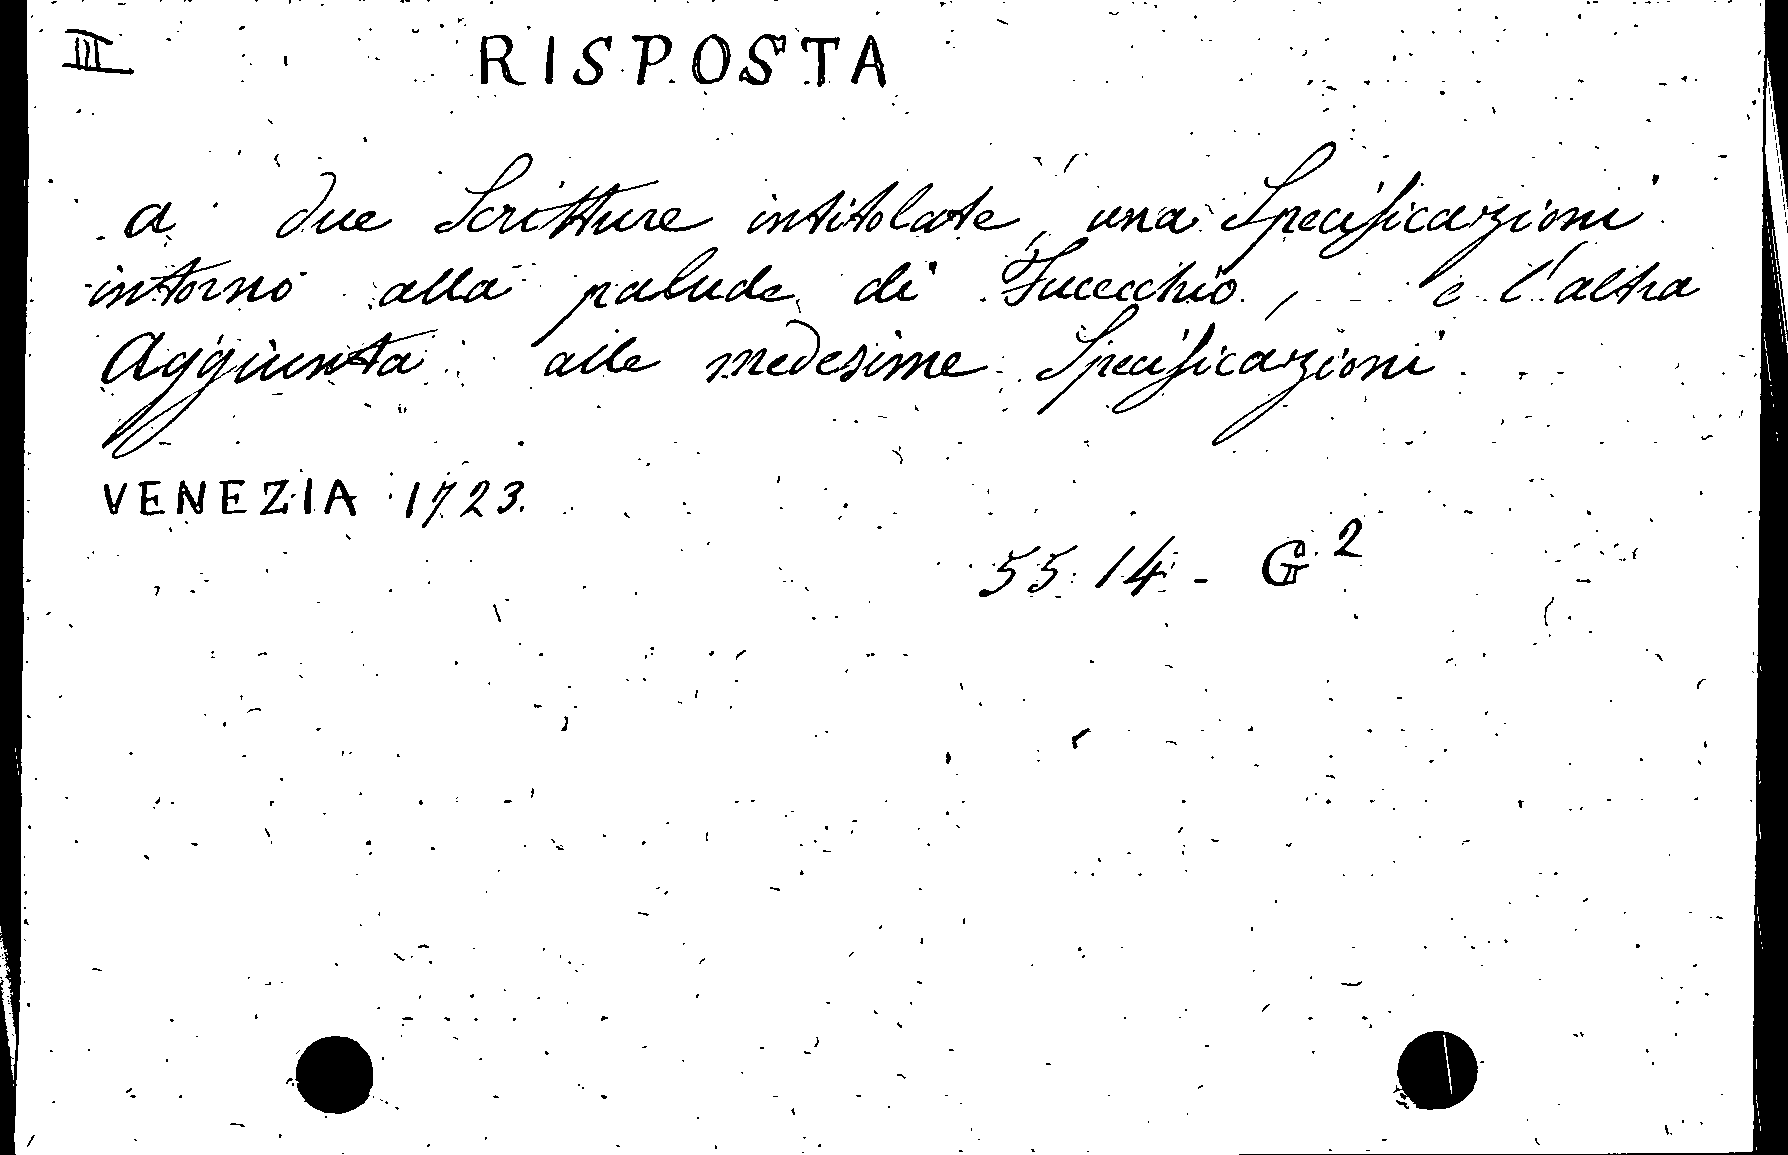 III RISPOSTA
a due Scritture intitolate, una Specificazioni
intorno alla palude di Fucecchio, e l'altra
Aggiunta alle medesime Specificazioni
VENEZIA 1723.
55.14 - G²